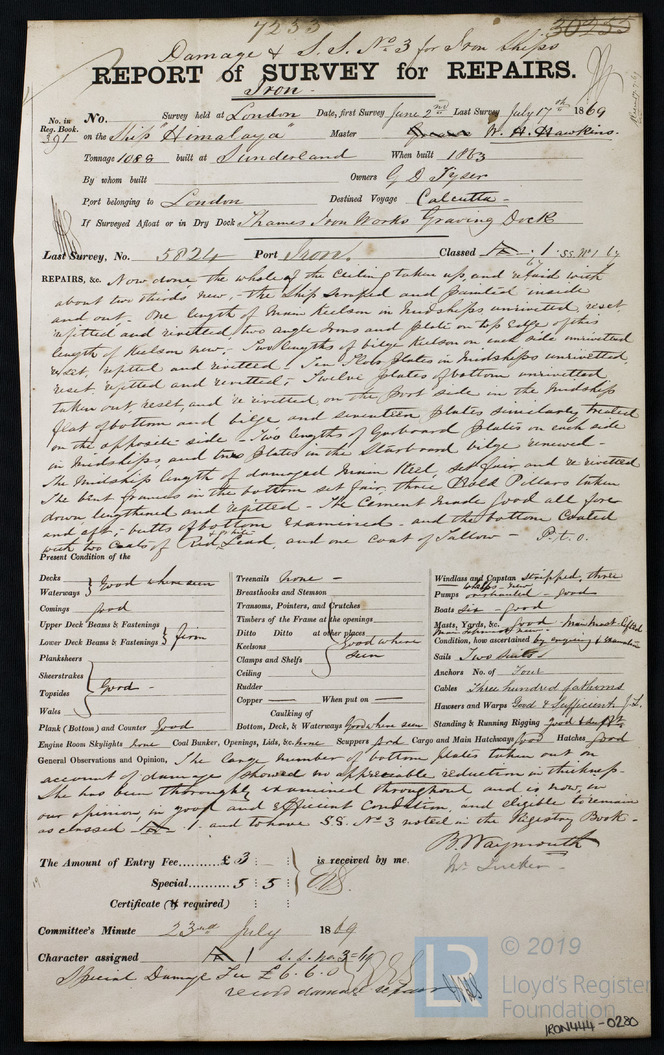 7233
30255
Damage & S.S. No 3 for Iron Ships
REPORT of SURVEY for REPAIRS.
Iron
No. in Reg. Book. 391
No. Survey held at London Date, first Survey June 2nd Last Survey July 17th 1869
on the Ship "Himalaya" Master W. H. Hawkins.
Tonnage 1088 built at Sunderland When built 1863
By whom built Owners G D Tyser
Port belonging to London Destined Voyage Calcutta
If Surveyed Afloat or in Dry Dock Thames Iron Works Graving Dock
Last Survey, No. 5824 Port Iron. Classed 1 SS No 1 67
REPAIRS, &c. Now done the whole of the Ceiling taken up, and relaid with
about two thirds new, - the Ship scraped and painted inside
and out. One length of Main Keelson in Midships unriveted, reset,
refitted and rivetted, two angle Irons and plate on top edge of this
length of Keelson new, - Two lengths of bilge Keelson on each side unrivetted
reset, refitted and rivetted. - Ten Floor plates in Midships unrivetted,
reset, refitted and rivetted, - Twelve plates of bottom unrivetted,
taken out, reset, and re rivetted, on the port side in the Midship
flat of bottom and bilge, and seventeen plates similarly treated
on the opposite side - Two lengths of Garboard plates on each side
in Midships, and two plates in the Starboard bilge renewed -
The Midship length of damaged Main Keel, set fair and re rivetted
The bent frames in the bottom set fair, three Hold Pillars taken
down, lengthened and refitted - The Cement made good all fore
and aft, butts of bottom Examined - and the bottom Coated
with two Coats of Red Lead, and one Coat of Tallow - P.t.o.
Present Condition of the
Decks
Waterways } Good where seen
Comings good
Upper Deck Beams & Fastenings
Lower Deck Beams & Fastenings } firm
Planksheers
Sheerstrakes
Topsides
Wales } Good -
Plank (Bottom) and Counter Good
Treenails None -
Breasthooks and Stemson
Transoms, Pointers, and Crutches
Timbers of the Frame at the openings
Ditto Ditto at other places
Keelsons
Clamps and Shelfs } Good where seen
Ceiling
Rudder
Copper When put on
Caulking of
Bottom, Deck, & Waterways Good where seen
Windlass and Capstan Stripped, three
whelps new
Pumps overhauled - Good
Boats Six - Good
Masts, Yards, &c. Good Main mast lifted
Condition, how ascertained by enquiry & examination
Sails Two suits
Anchors No. of Four
Cables Three hundred fathoms
Hawsers and Warps Good & Sufficient
Standing & Running Rigging good & sufft
Engine Room Skylights None Coal Bunker, Openings, Lids, &c. None Scuppers Good Cargo and Main Hatchways Good Hatches Good
General Observations and Opinion, The large number of bottom plates taken out on
account of damage showed no appreciable reduction in thickness.
She has been thoroughly examined throughout and is now, in
our opinion, in good and Efficient Condition, and eligible to remain
as classed 1. and to have SS. No 3 noted in the Registry Book -
B. Waymouth
The Amount of Entry Fee......£ 3 : :
Special......... 5 : 5 :
Certificate (if required)
is received by me,
Wm Tucker
Committee's Minute 23rd July 1869
Character assigned 1 S.S. No. 3-69
Special Damage Fee £6.6.0
record damage repairs
LR
© 2019
Lloyd's Register
Foundation
IRON444-0280